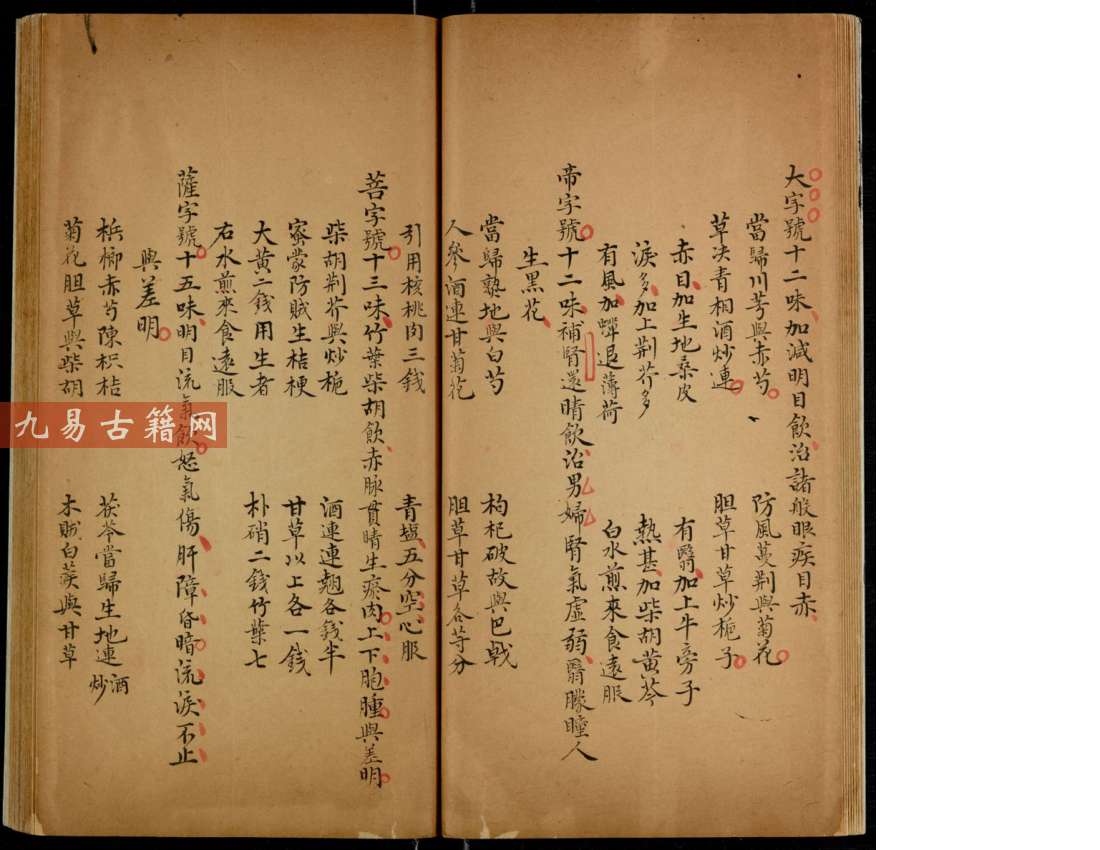 大字號十二味加減明目飲治諸般眼疾目赤
當歸川芎與赤芍 防風蔓荆與菊花
草决青相酒炒連 胆草甘草炒梔子
赤目加生地桑皮 有翳加上牛旁子
淚多加上荆芥多 熱甚加柴胡黄芩
有風加蟬退薄荷 白水煎來食遠服
帝字號十二味補腎還睛飲治男婦腎氣虛弱翳朦瞳人
生黑花
當歸熟地與白芍 枸杞破故與巴戟
人參酒連甘菊花 胆草甘草各等分
引用核桃肉三錢 青塩五分空心服
菩字號十三味竹葉柴胡飲赤脉貫睛生瘀肉上下胞腫與差明
柴胡荆芥與炒梔 酒連連翹各錢半
蜜蒙防賊生桔梗 甘草以上各一錢
大黄二錢用生者 朴硝二錢竹葉七
右水煎來食遠服
薩字號十五味明目流氣飲怒氣傷肝障昏暗流淚不止
與差明
梹榔赤芍陳枳桔 茯苓當歸生地連酒炒
菊花胆草與柴胡 木賊白蒺與甘草
九易古籍网